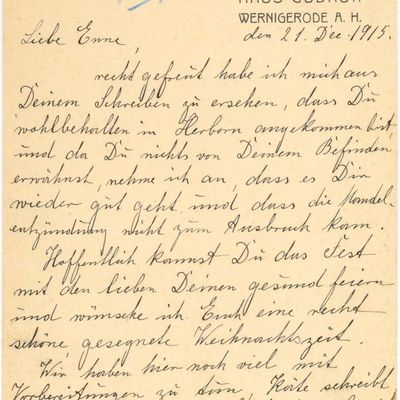 HAUS GUDRUN
WERNIGERODE A. H.
Liebe Enne, den 21. Dec. 1915.
recht gefreut habe ich mich aus
Deinem Schreiben zu ersehen, dass Du
wohlbehalten in Herborn angekommen bist
und da Du nichts von Deinem Befinden
erwähnst, nehme ich an, dass es Dir
wieder gut geht und dass die Mandel-
entzündung nicht zum Ausbruch kam.
Hoffentlich kannst Du das Fest
mit den lieben Deinen gesund feiern
und wünsche ich Euch eine recht
schöne gesegnete Weihnachtszeit.
Wir haben hier noch viel mit
Vorbereitungen zu tun, Käte schreibt